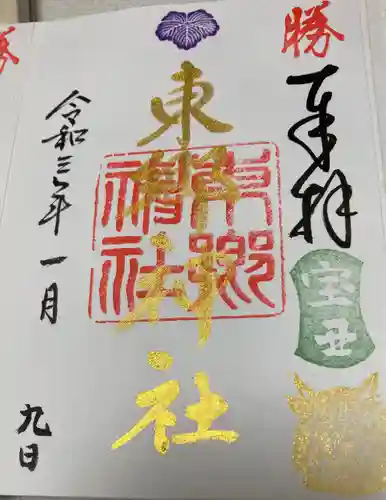 勝
奉拝
宝丑
東郷神社
東郷
神社
令和三年一月
九日